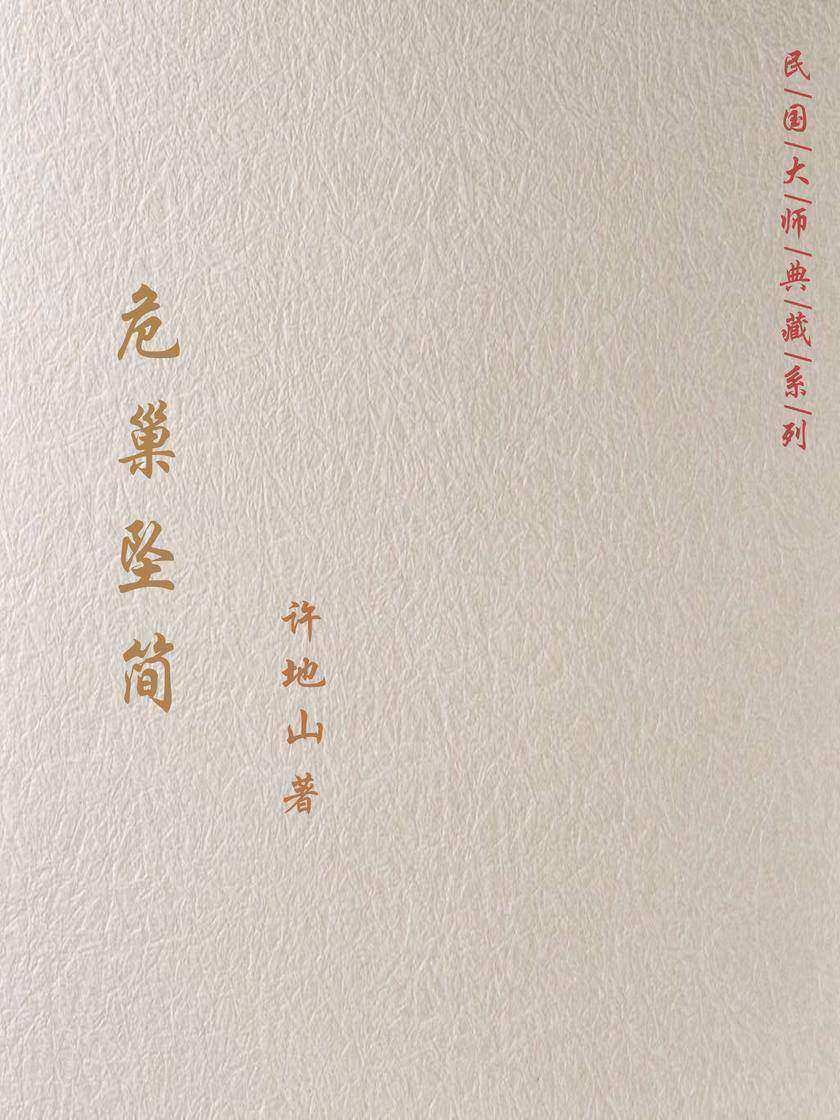 民/国/大/师/典/藏/系/列
危巢坠简
许地山 著